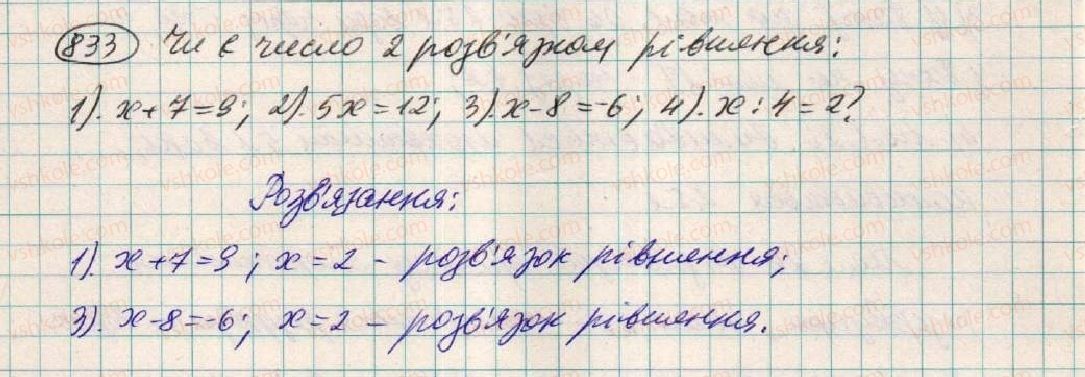 833 Чи є число 2 розв'язком рівняння:
1). x+7=9; 2). 5x=12; 3). x-8=-6; 4). x:4=2?
Розв'язання:
1). x+7=9; x=2 - розв'язок рівняння;
3). x-8=-6; x=2 - розв'язок рівняння.